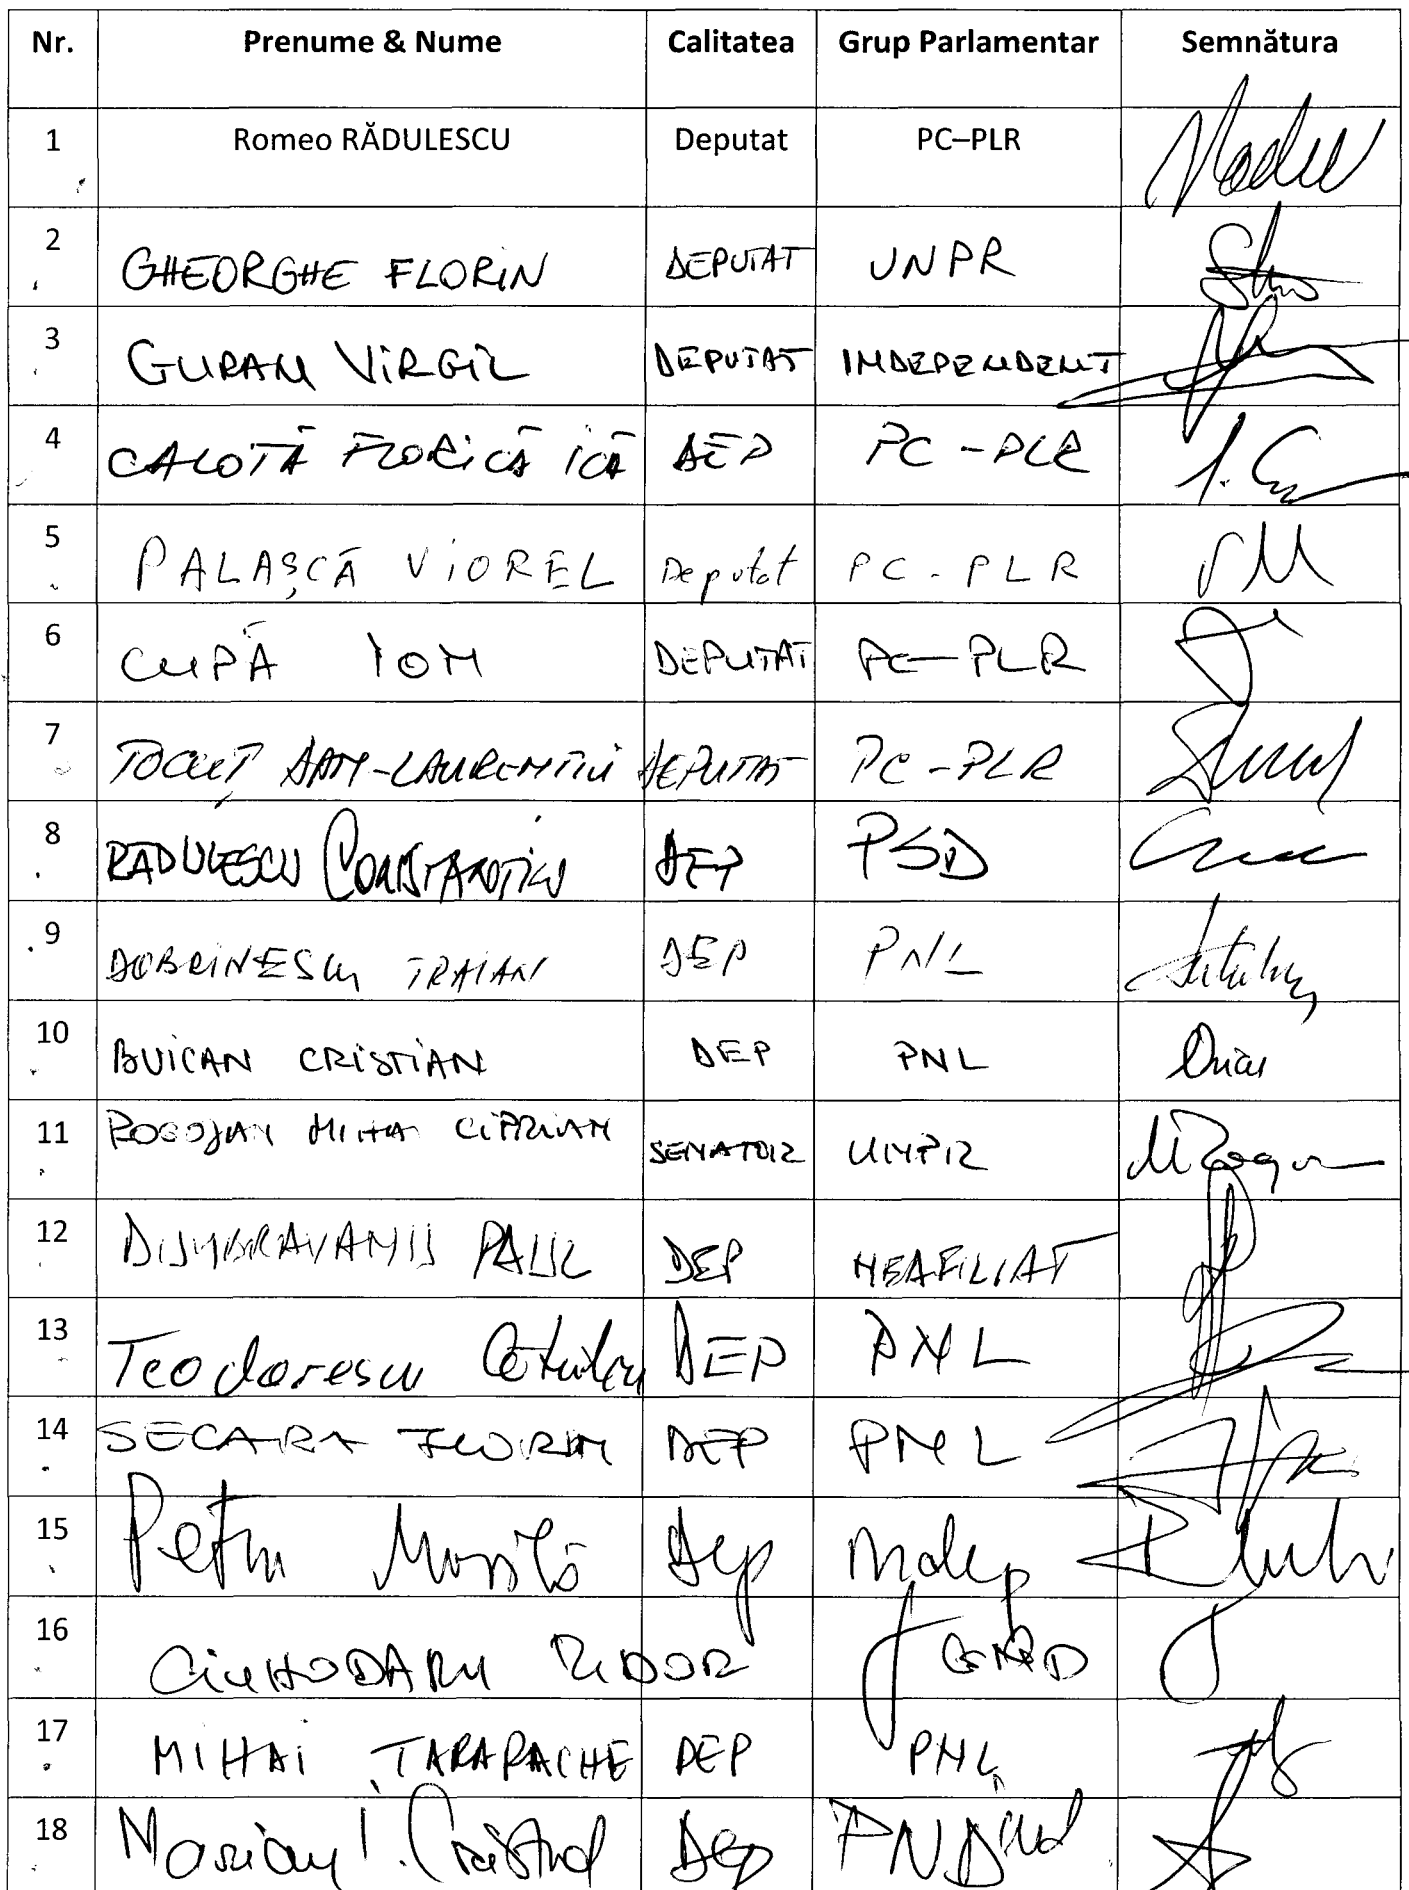 Nr. Prenume & Nume Calitatea Grup Parlamentar Semnătura
1 Romeo RĂDULESCU Deputat PC–PLR
2 GHEORGHE FLORIN DEPUTAT UNPR
3 GURAN VIRGIL DEPUTAT INDEPENDENT
4 CALOTĂ FLORICĂ ICĂ DEP PC-PLR
5 PALAȘCĂ VIOREL Deputat PC-PLR
6 CUPĂ ION DEPUTAT PC-PLR
7 TOCUȚ DAN-LAURENȚIU DEPUTAT PC-PLR
8 RADULESCU CONSTANTIN DEP PSD
9 DOBRINESCU TRAIAN DEP PNL
10 BUICAN CRISTIAN DEP PNL
11 ROGOJAN MIHAI CIPRIAN SENATOR UNPR
12 DUMBRAVANU PAUL DEP NEAFILIAT
13 Teodorescu DEP PNL
14 SECARA FLORIN DEP PNL
15 Petru Dep Indep
16 CIUHODARU TUDOR
17 MIHAI TARARACHE DEP PNL
18 Dep